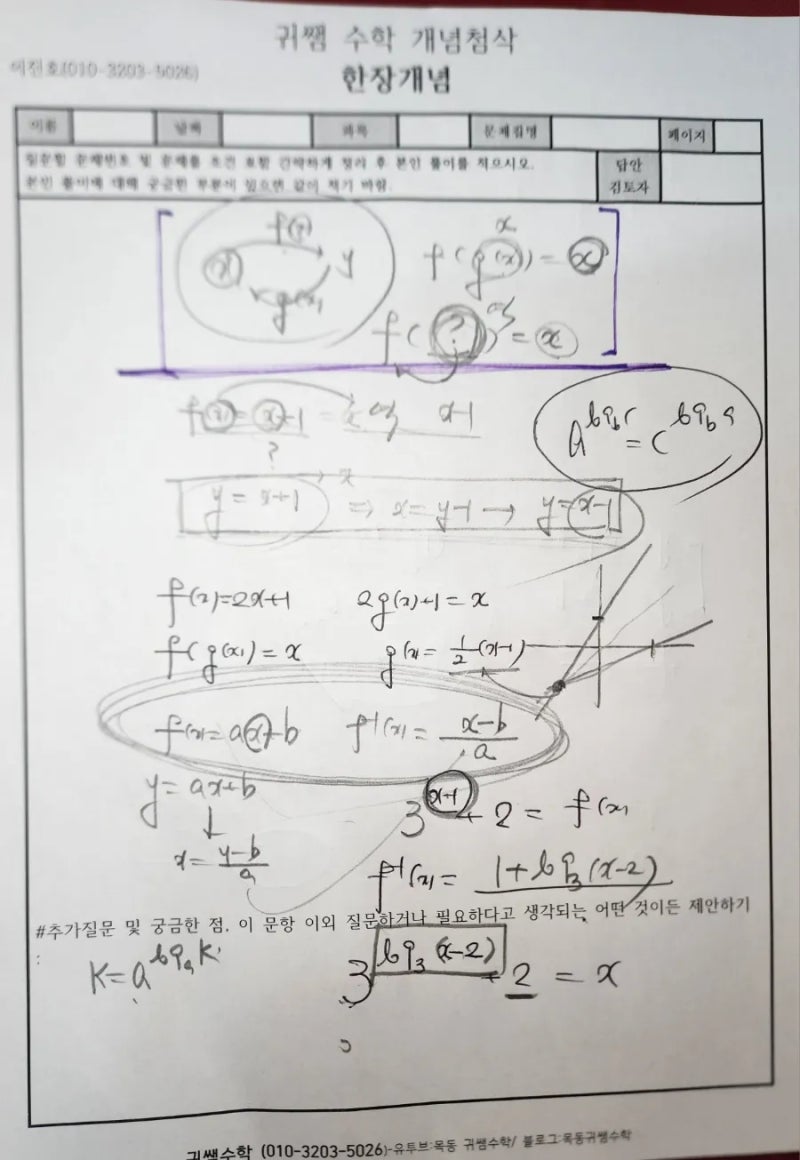 귀쌤 수학 개념첨삭
이진호(010-3203-5026)
한장개념
이름 날짜 과목 문제집명 페이지
질문할 문제번호 및 문제를 조건 포함 간략하게 정리 후 본인 풀이를 적으시오.
본인 풀이에 대해 궁금한 부분이 있으면 같이 적기 바람.
답안
검토자
f(x)
x y
g(x)
x
f(g(x)) = x
f( ? ) = x
f(x) = x-1
x-1
?
a^{log_b c} = c^{log_b a}
y = x+1 ⇒ x = y-1 → y = x-1
f(x)=2x+1 2g(x)+1 = x
f(g(x)) = x g(x) = 1/2 (x-1)
f(x) = ax+b f⁻¹(x) = (x-b)/a
y = ax+b
↓
x = (y-b)/a
3^{x-1} + 2 = f(x)
f⁻¹(x) = 1+log_3 (x-2)
#추가질문 및 궁금한 점, 이 문항 이외 질문하거나 필요하다고 생각되는 어떤 것이든 제안하기
:
K = a^{log_a K}
3^{log_3 (x-2)} + 2 = x
귀쌤수학 (010-3203-5026)-유투브:목동 귀쌤수학/ 블로그:목동귀쌤수학